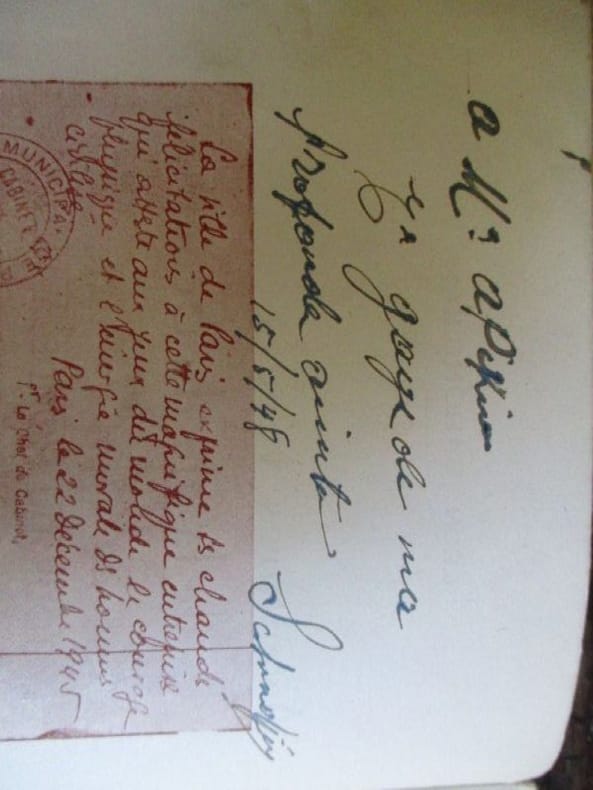 a Mr
En gage de ma
profonde amitié
15/5/48
La ville de Paris exprime ses chaudes
félicitations à cette magnifique entreprise
qui atteste aux yeux du monde le courage
physique et l'énergie morale des hommes
Paris le 22 décembre 1945
Pr. Le Chef de Cabinet,
MUNICIPAL
CABINET